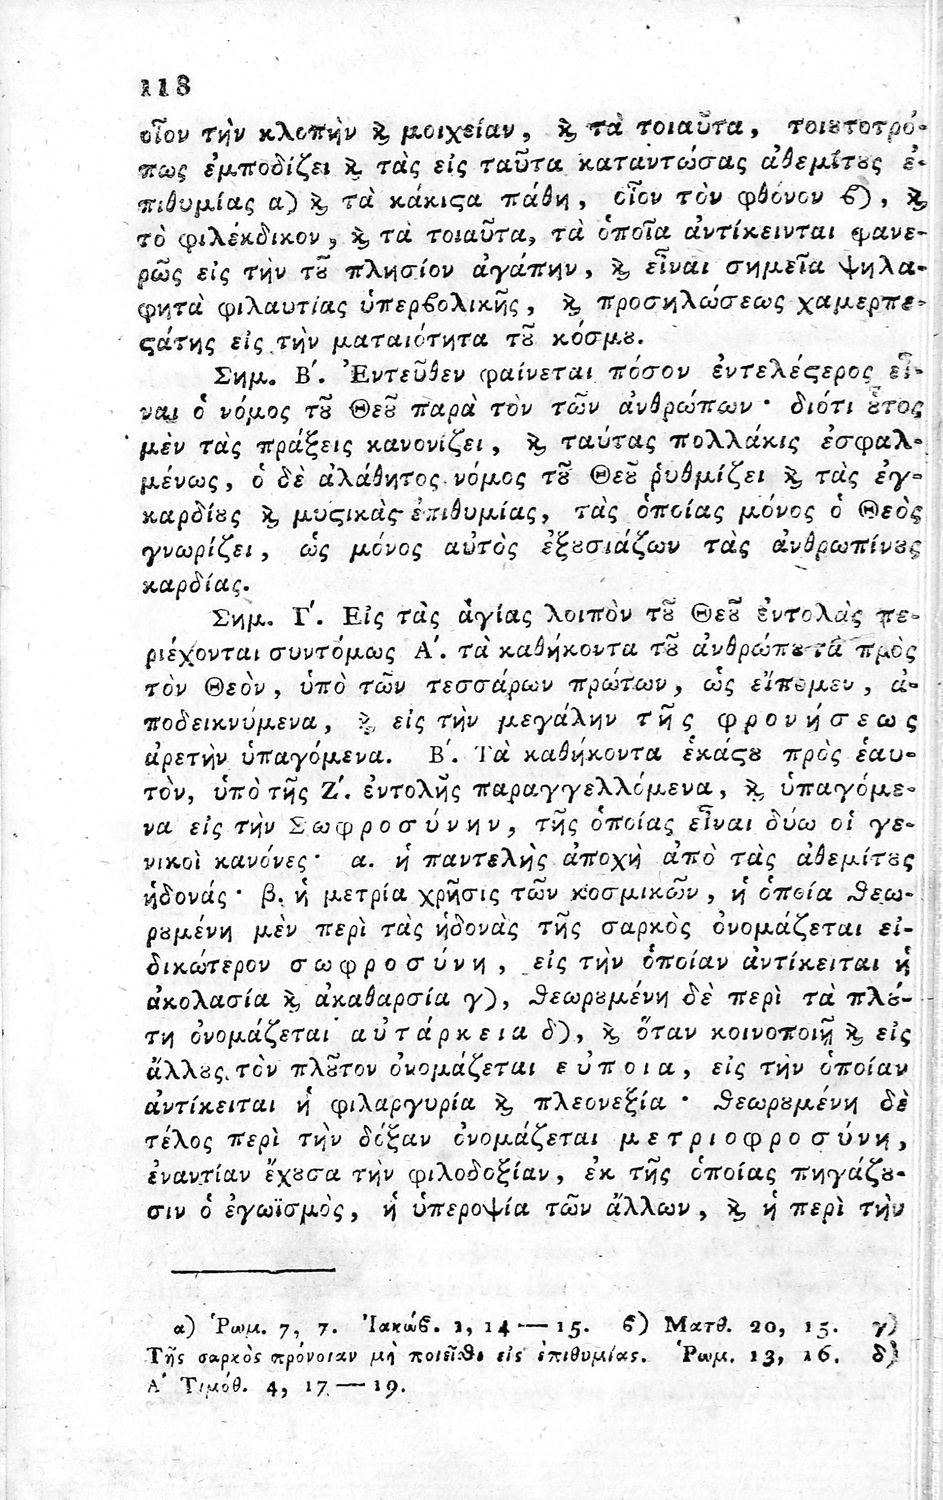 118
οἷον τὴν κλοπὴν ϗ μοιχείαν, ϗ τὰ τοιαῦτα, τοιȣτοτρό-
πως ἐμποδίζει ϗ τὰς εἰς ταῦτα καταντώσας ἀθεμίτȣς ἐ-
πιθυμίας α) ϗ τὰ κάκιϛα πάθη, οἷον τὸν φθόνον ϐ), ϗ
τὸ φιλέκδικον, ϗ τὰ τοιαῦτα, τὰ ὁποῖα ἀντίκεινται φανε-
ρῶς εἰς τὴν τȣ͂ πλησίον ἀγάπην, ϗ εἶναι σημεῖα ψηλα-
φητὰ φιλαυτίας ὑπερϐολικῆς, ϗ προσηλώσεως χαμερπε-
ϛάτης εἰς τὴν ματαιότητα τȣ͂ κόσμȣ.
Σημ. Β΄. Ἐντεῦθεν φαίνεται πόσον ἐντελέϛερος εἶ-
ναι ὁ νόμος τȣ͂ Θεȣ͂ παρὰ τὸν τῶν ἀνθρώπων· διότι ȣ̔͂τος
μὲν τὰς πράξεις κανονίζει, ϗ ταύτας πολλάκις ἐσφαλ-
μένως, ὁ δὲ ἀλάθητος νόμος τȣ͂ Θεȣ͂ ῥυθμίζει ϗ τὰς ἐγ-
καρδίȣς ϗ μυϛικὰς ἐπιθυμίας, τὰς ὁποίας μόνος ὁ Θεὸς
γνωρίζει, ὡς μόνος αὐτὸς ἐξȣσιάζων τὰς ἀνθρωπίνȣς
καρδίας.
Σημ. Γ΄. Εἰς τὰς ἁγίας λοιπὸν τȣ͂ Θεȣ͂ ἐντολὰς πε-
ριέχονται συντόμως Α΄. τὰ καθήκοντα τȣ͂ ἀνθρώπȣ τὰ πρὸς
τὸν Θεὸν, ὑπὸ τῶν τεσσάρων πρώτων, ὡς εἴπομεν, ἀ-
ποδεικνύμενα, ϗ εἰς τὴν μεγάλην τῆς φρονήσεως
ἀρετὴν ὑπαγόμενα. Β΄. Τὰ καθήκοντα ἑκάϛȣ πρὸς ἑαυ-
τὸν, ὑπὸ τῆς Ζ΄. ἐντολῆς παραγγελλόμενα, ϗ ὑπαγόμε-
να εἰς τὴν Σωφροσύνην, τῆς ὁποίας εἶναι δύω οἱ γε-
νικοὶ κανόνες· α. ἡ παντελὴς ἀποχὴ ἀπὸ τὰς ἀθεμίτȣς
ἡδονάς· β. ἡ μετρία χρῆσις τῶν κοσμικῶν, ἡ ὁποία θεω-
ρȣμένη μὲν περὶ τὰς ἡδονὰς τῆς σαρκὸς ὀνομάζεται εἰ-
δικώτερον σωφροσύνη, εἰς τὴν ὁποίαν ἀντίκειται ἡ
ἀκολασία ϗ ἀκαθαρσία γ), θεωρȣμένη δὲ περὶ τὰ πλȣ́-
τη ὀνομάζεται αὐτάρκεια δ), ϗ ὅταν κοινοποιῇ ϗ εἰς
ἄλλȣς τὸν πλȣ͂τον ὀνομάζεται εὐποια, εἰς τὴν ὁποίαν
ἀντίκειται ἡ φιλαργυρία ϗ πλεονεξία· θεωρȣμένη δὲ
τέλος περὶ τὴν δόξαν ὀνομάζεται μετριοφροσύνη,
ἐναντίαν ἔχȣσα τὴν φιλοδοξίαν, ἐκ τῆς ὁποίας πηγάζȣ-
σιν ὁ ἐγωϊσμὸς, ἡ ὑπεροψία τῶν ἄλλων, ϗ ἡ περὶ τὴν
α) Ῥωμ. 7, 7. Ἰακώϐ. 1, 14—15. ϐ) Ματθ. 20, 15. γ)
Τῆς σαρκὸς πρόνοιαν μὴ ποιεῖσθε εἰς ἐπιθυμίας. Ῥωμ. 13, 16. δ)
Α΄ Τιμόθ. 4, 17—19.